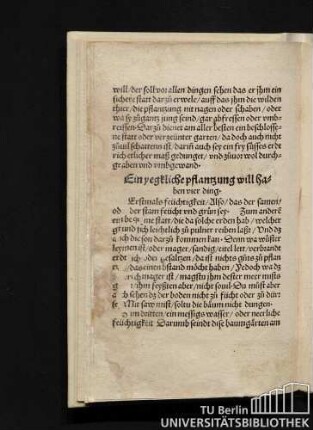 will/ der soll vor allen dingen sehen das er jhm ein
sichere statt darzů erwele/ auff das jhn die wilden
thier/ die pflantzung nit nagen oder schaben/ oder
wa sy zů gantz jung seind/ gar abfressen oder vmb-
reissen. Darzů dienet am aller besten ein beschlosse-
ne statt oder verzeünter garten/ da doch auch nicht
zuuil schattens ist/ darin auch sey ein frey süsses erdt
rich etlicher maß gedunget/ vnd zůuor wol durch-
graben vnd vmbgewand
Ein yegkliche pflantzung will ha-
ben vier ding.
Erstmals feüchtigkeit/ Also/ das der samen/
oder stam feücht vnd grün sey. Zum andern
statt/ die da solche erden hab/ welcher
sich leichtlich zů puluer reiben laßt/ Vnd dz
die son darzů kommen kan. Denn wa wüster
leymen ist/ oder mager/ sandig/ eitel lett/ verbrandt
oder gesaltzen/ da ist nichts gůts zů pflan
das einen bstand möcht haben/ Jedoch wa dz
mager ist/ magstu jhm dester meer mists
jhm feyßten aber/ nicht souil. Du můst aber
sehen dz der boden nicht zů feücht oder zů dürr
Mit saw mist/ soltu die bäum nicht dungen.
Zum dritten/ ein messigs wasser/ oder neerliche
feüchtigkeit. Darumb seindt dise baumgärten am
TU Berlin
UNIVERSITÄTSBIBLIOTHEK